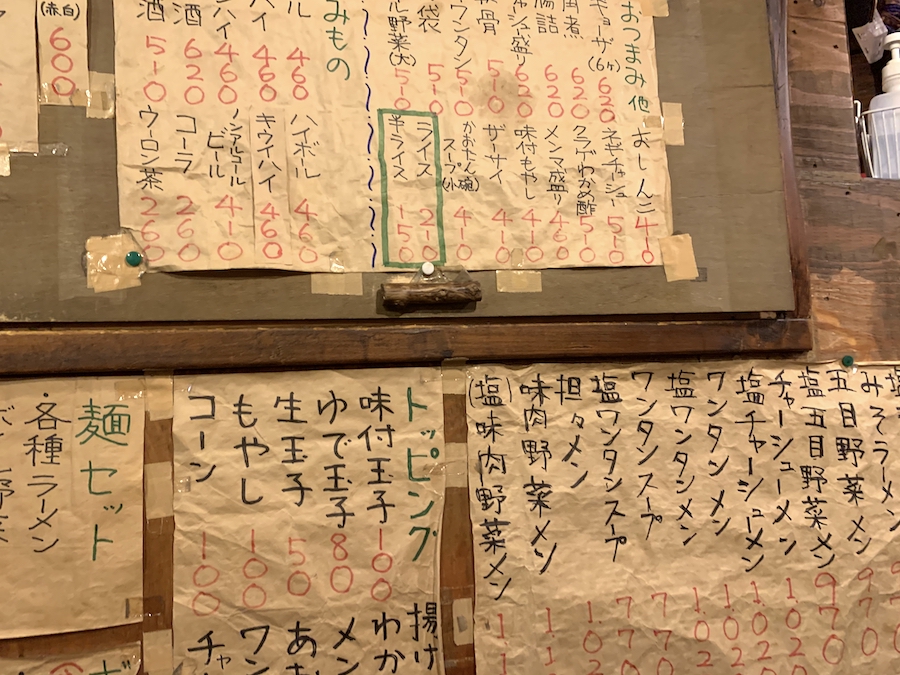 おつまみ他
ギョーザ(6ヶ) 620
角煮 620
腸詰 620
チャーシュー盛り 620
軟骨 510
ワンタン 510
袋 510
野菜(大) 510
おしんこ 410
ネギチャシュー 510
クラゲわかめ酢 510
メンマ盛り 460
味付もやし 410
ザーサイ 410
かおたんスープ(小碗) 410
ライス 210
半ライス 150
みもの
ル 460
ハイ 460
ハイ 460
酒 620
酒 510
ハイボール 460
キウイハイ 460
ノンアルコールビール 410
コーラ 260
ウーロン茶 260
(赤白) 600
みそラーメン
五目野菜メン
塩五目野菜メン 970
チャーシューメン
塩チャーシューメン
ワンタンメン
塩ワンタンメン
ワンタンスープ 770
塩ワンタンスープ 770
担々メン
味肉野菜メン
(塩)味肉野菜メン
トッピング
味付玉子 100
ゆで玉子 80
生玉子 50
もやし 100
コーン 100
揚げ
わか
メン
あお
ワン
チャ
麺セット
・各種ラーメン